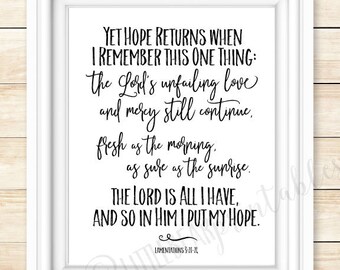 Yet Hope Returns when
I Remember this One Thing:
the Lord's unfailing love
and mercy still continue,
fresh as the morning,
as sure as the sunrise.
The Lord is All I Have,
and so in Him I put my Hope.